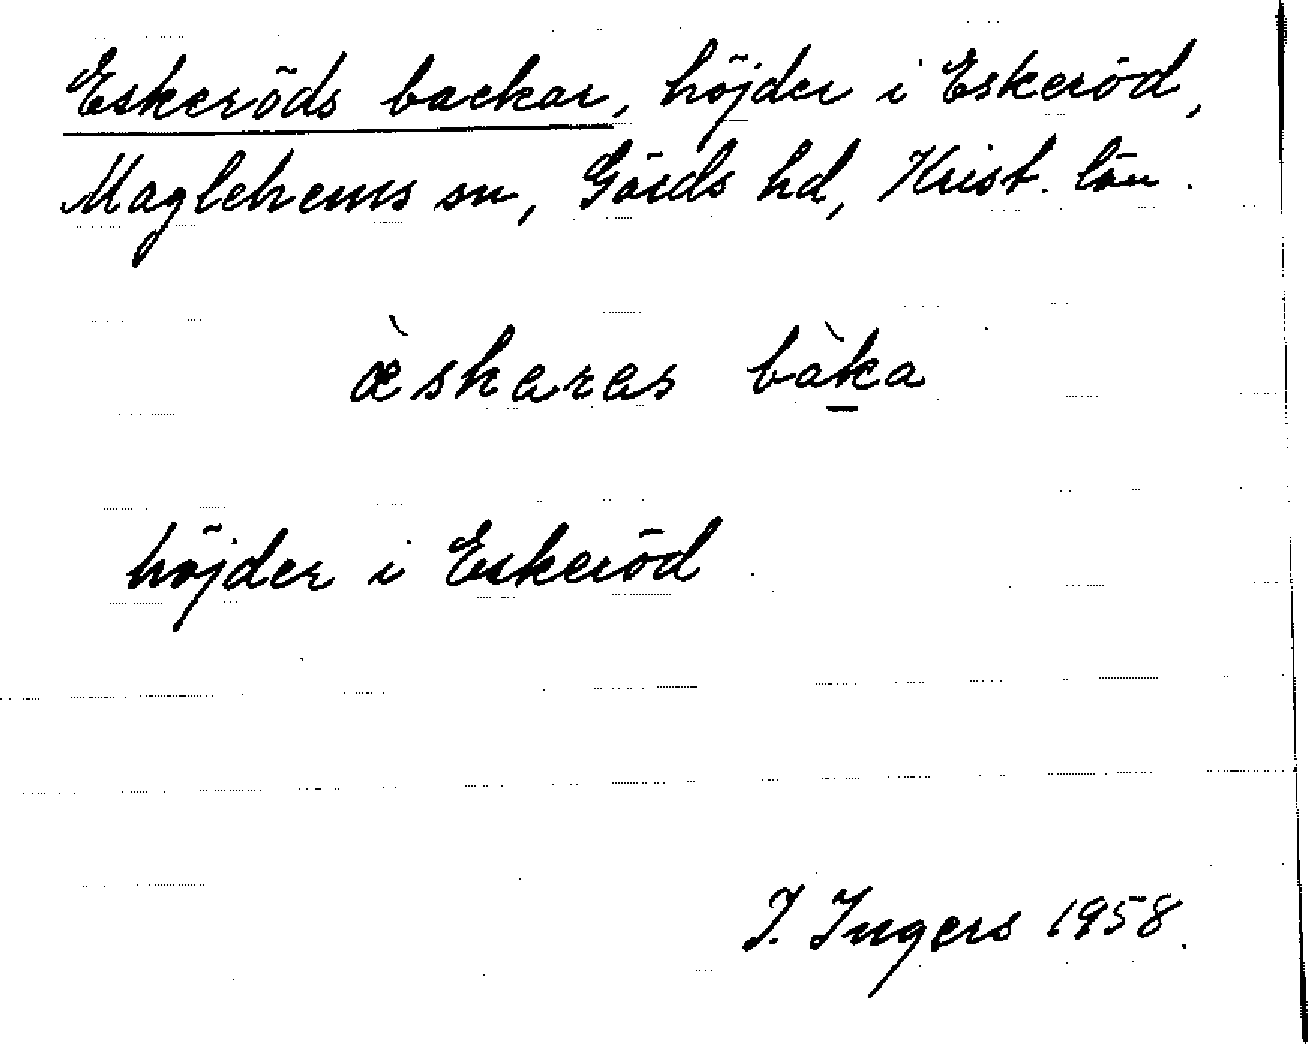 Eskeröds backar, höjder i Eskeröd,
Maglehems sn, Gärds hd, Krist. län.
æ̀skaras bàk̲a
höjder i Eskeröd.
I. Ingers 1958.